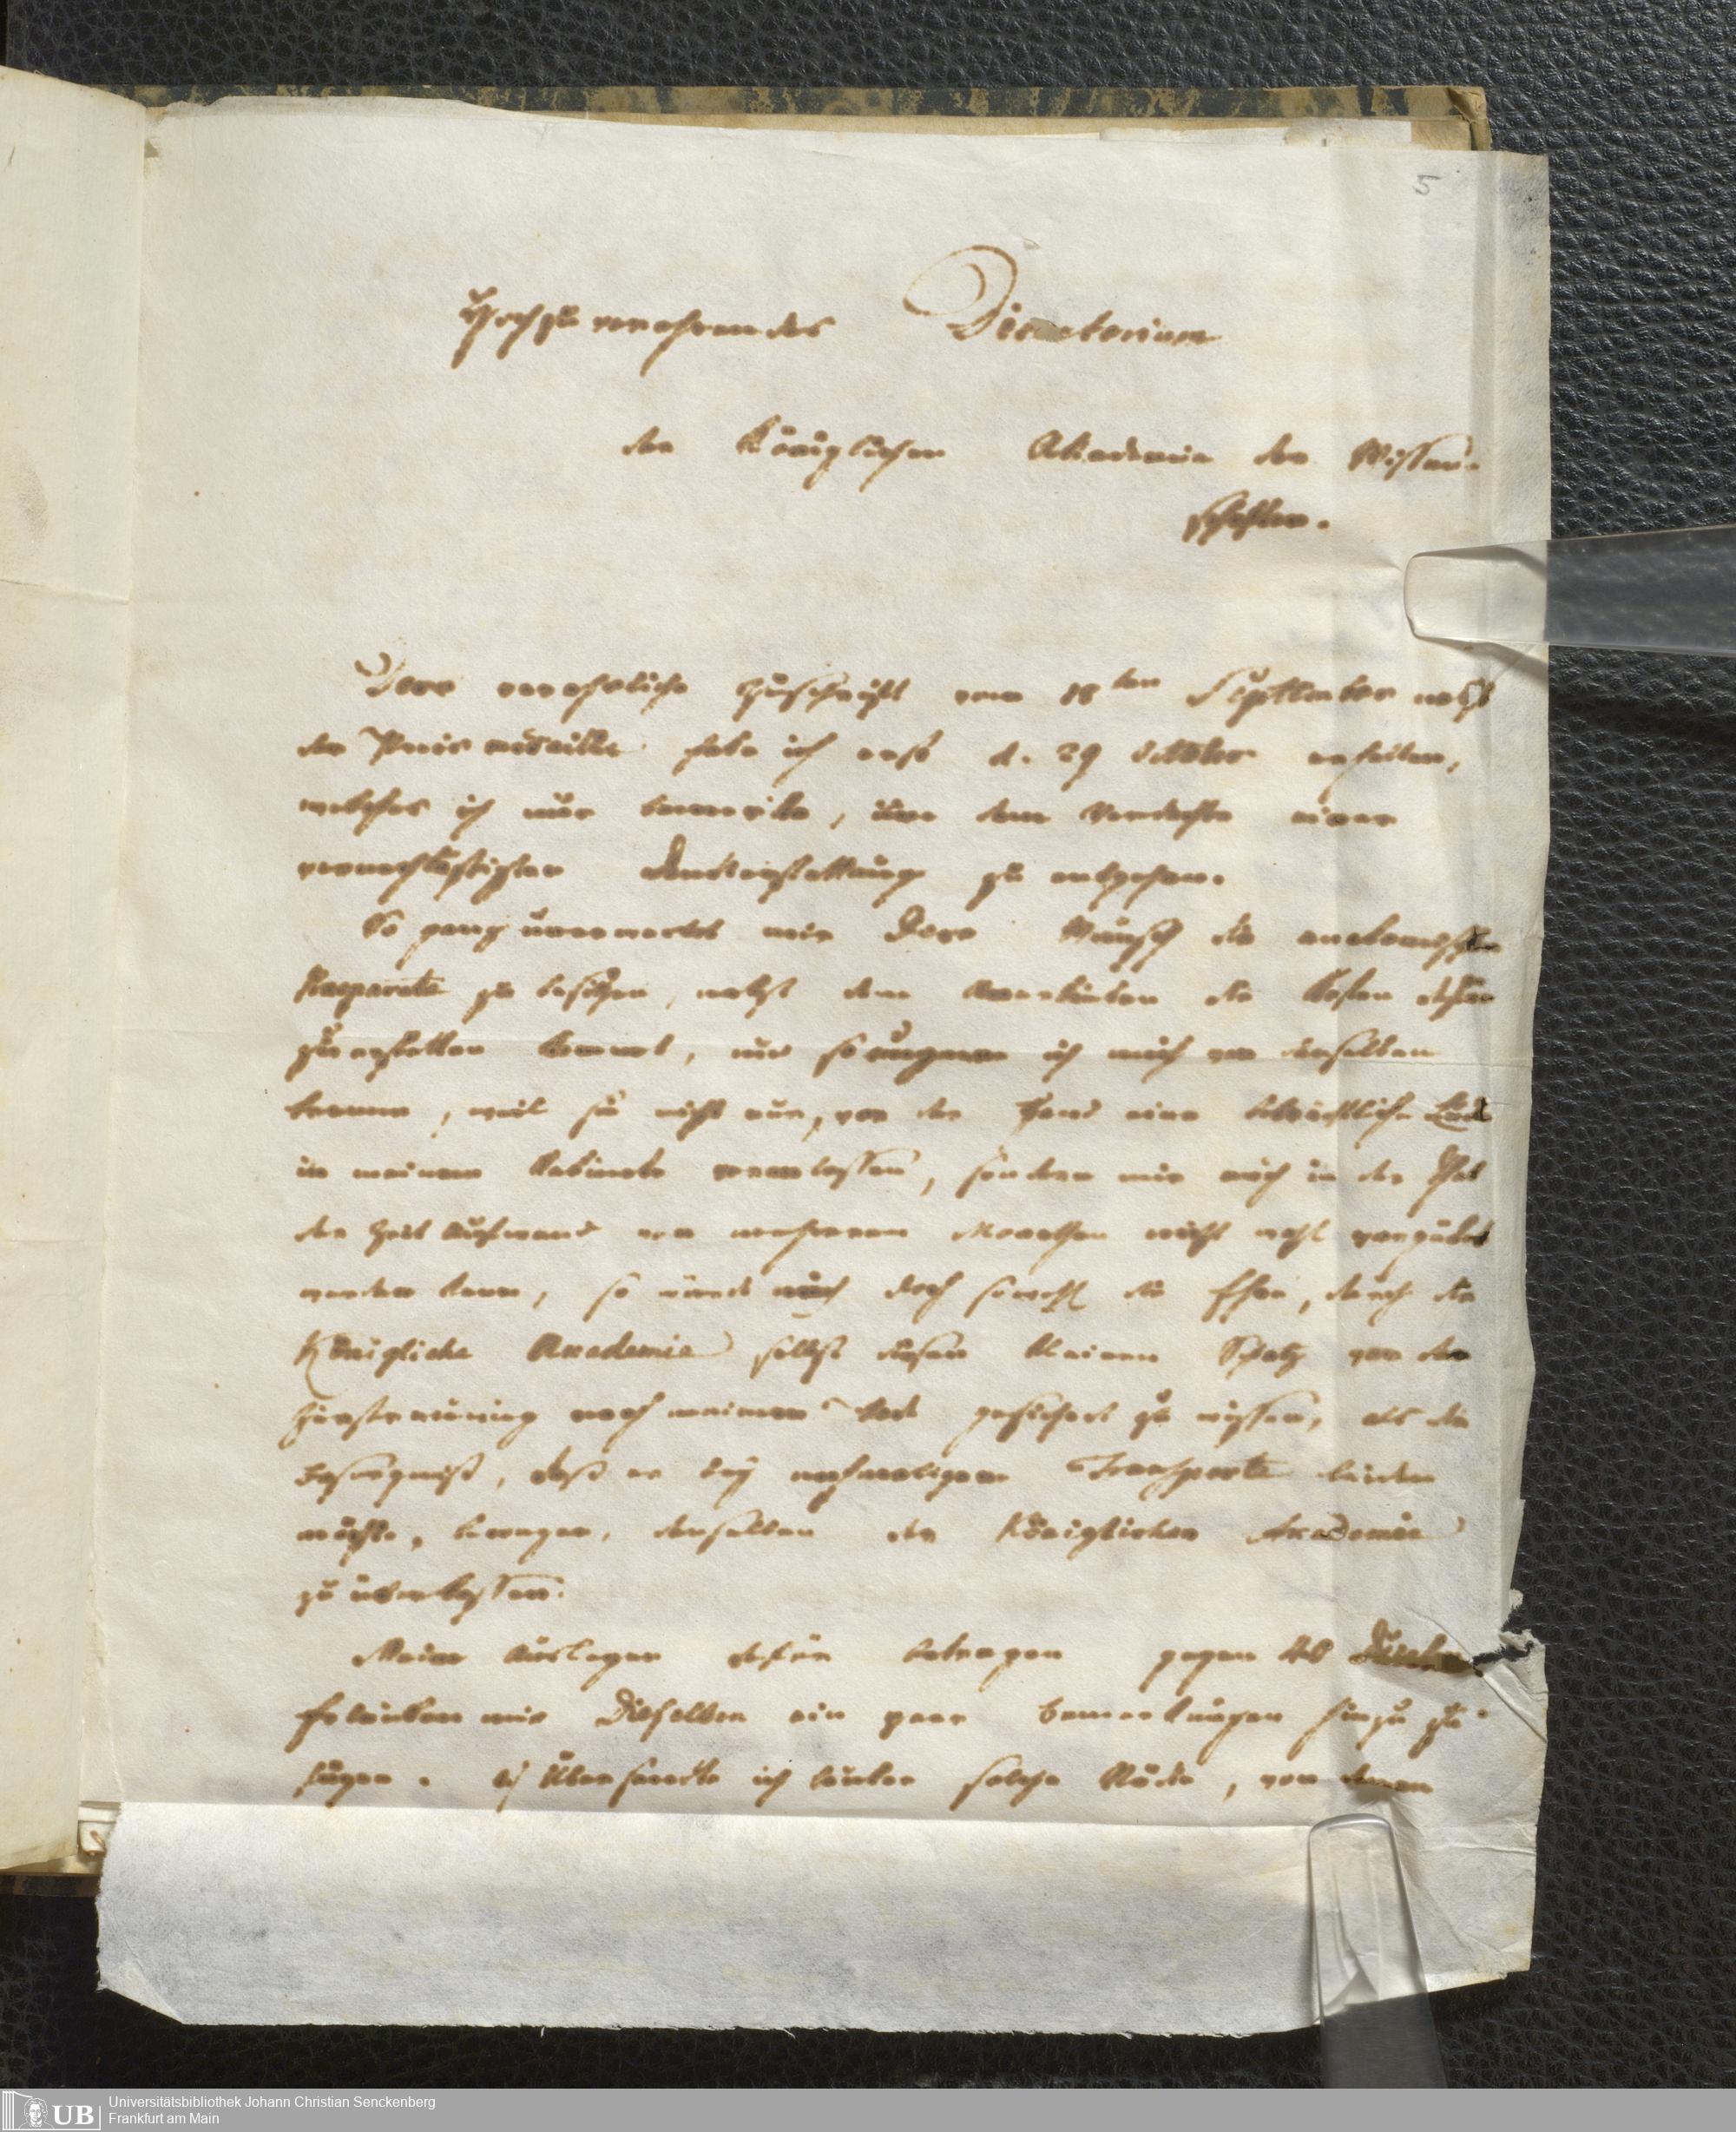 5
Hochzuverehrendes Directorium
der Königlichen Akademie der Wissen-
schaften.
Dero verehrliche Zuschrift vom 18ten September nebst
der Preismedaille habe ich erst d. 29 October erhalten,
welches ich nur bemerke, um dem Verdachte einer
vernachlässigten Danksagung zu entgehen.
So ganz unerwartet mir Dero Wunsch die anatomischen
Präparate zu besitzen, nebst dem Anerbieten die Kosten dafür
zu erstatten kommt, und so ungern ich mich von denselben
trenne, weil sie nicht nur, vor der Hand eine beträchtliche Lücke
in meinem Kabinete veranlassen, sondern mir auch in der That
der Zeit Aufwand von mehreren Monathen nicht wohl vergütet
werden kann, so mich doch sowohl die Ehre, durch die
Königliche Akademie selbst diesen kleinen Schatz vor der
Zerstreuung nach meinem Tode gesichert zu wissen, als die
Besorgniß, daß er bey nochmaligem Transporte leiden
möchte, bewegen, denselben der Königlichen Akademie
zu überlassen.
Meine Auslagen dafür betragen gegen
erlauben mir Dieselben ein paar Bemerkungen hinzu zu
fügen. übersandte ich lauter solche Stücke, von denen
Universitätsbibliothek Johann Christian Senckenberg
Frankfurt am Main
UB